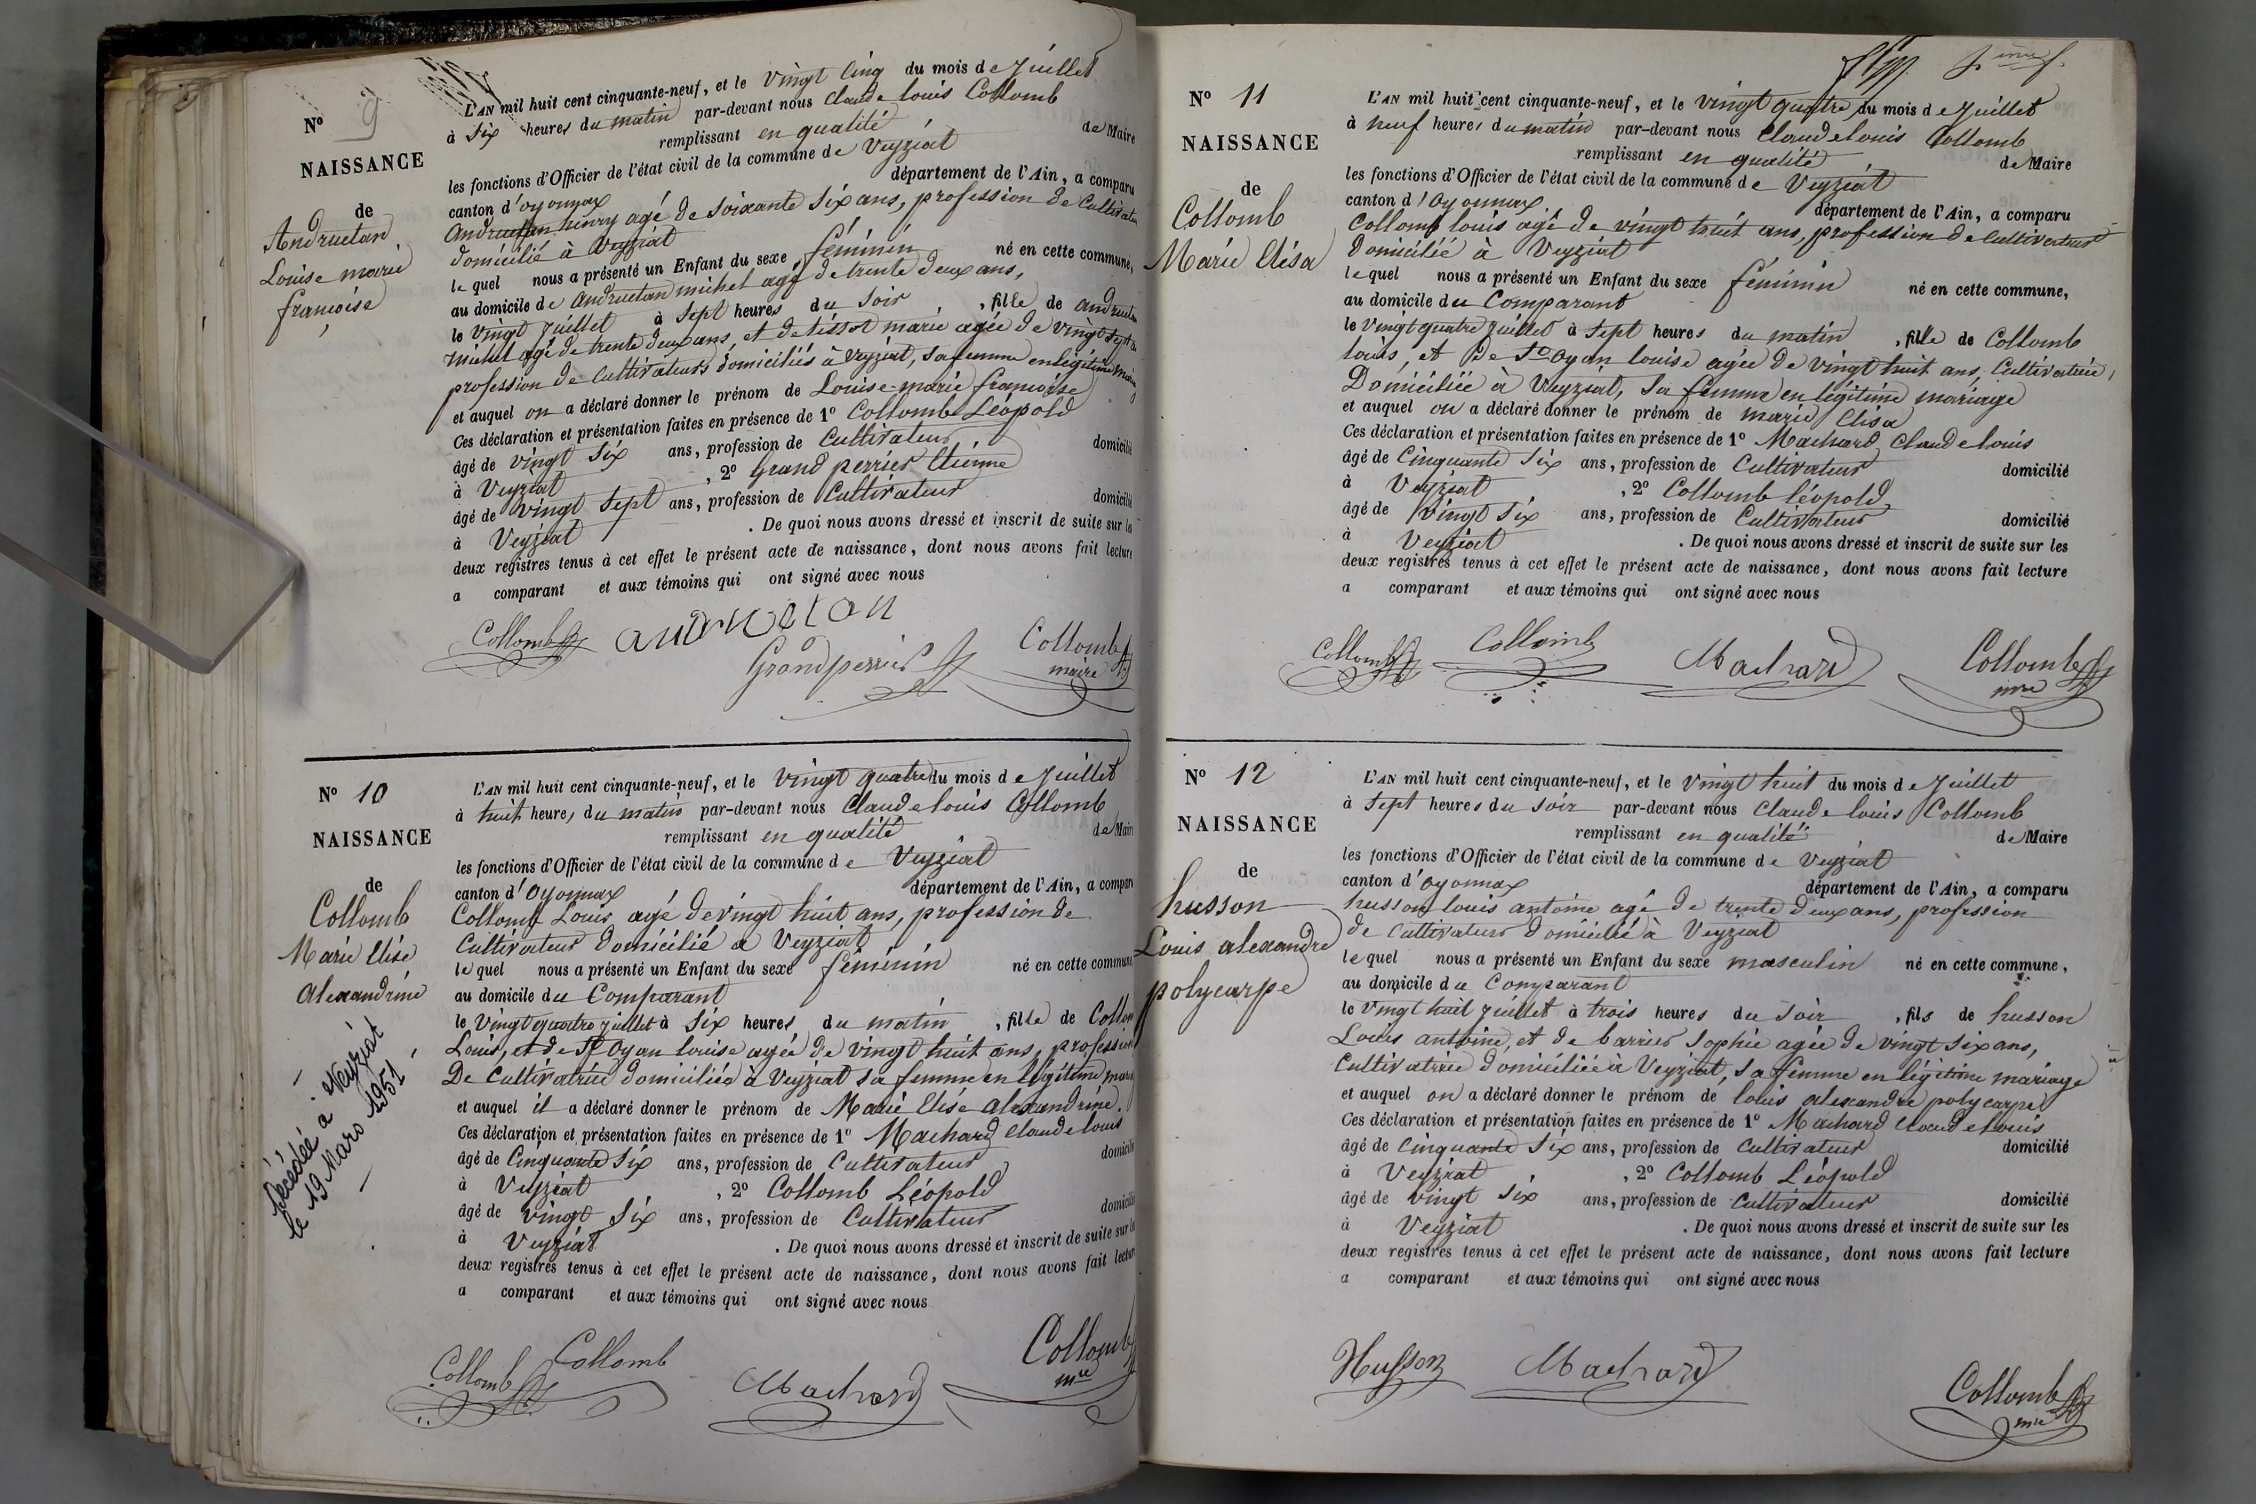 N° 9
NAISSANCE
de
Andruetan
Louise marie
françoise
L'AN mil huit cent cinquante-neuf, et le vingt cinq du mois de Juillet
à six heures du matin par-devant nous Claude louis Collomb
remplissant en qualité de Maire
les fonctions d'Officier de l'état civil de la commune de Veyziat
canton d'oyonnax département de l'Ain, a comparu
Andruetan henry agé de soixante six ans, profession de Cultivateur
domicilié à Veyziat
lequel nous a présenté un Enfant du sexe féminin né en cette commune,
au domicile de Andruetan michel agé de trente deux ans,
le vingt Juillet à sept heures du soir, fille de andruetan
michel agé de trente deux ans, et de tissot marie agée de vingt sept
profession de Cultivateurs domiciliés à Veyziat, sa femme en légitime
et auquel on a déclaré donner le prénom de Louise-marie françoise
Ces déclaration et présentation faites en présence de 1° Collomb Léopold
âgé de vingt six ans, profession de Cultivateur domicilié
à Veyziat, 2° Grand perrier Etienne
âgé de vingt sept ans, profession de Cultivateur domicilié
à Veyziat. De quoi nous avons dressé et inscrit de suite sur les
deux registres tenus à cet effet le présent acte de naissance, dont nous avons fait lecture
a comparant et aux témoins qui ont signé avec nous
Collomb andruetan
Grandperrier Collomb
maire
N° 10
NAISSANCE
de
Collomb
Marie Elise
Alexandrine
Décédée à Veyziat
le 19 Mars 1951
L'AN mil huit cent cinquante-neuf, et le vingt quatre du mois de Juillet
à huit heures du matin par-devant nous Claude louis Collomb
remplissant en qualité de Maire
les fonctions d'Officier de l'état civil de la commune de Veyziat
canton d'Oyonnax département de l'Ain, a comparu
Collomb Louis agé de vingt huit ans, profession de
Cultivateur domicilié à Veyziat
lequel nous a présenté un Enfant du sexe féminin né en cette commune
au domicile du Comparant
le Vingt quatre juillet à six heures du matin, fille de Collomb
Louis, et de St Oyan louise agée de vingt huit ans, profession
De Cultivatrice domiciliée à Veyziat sa femme en légitime
et auquel il a déclaré donner le prénom de Marie Elise alexandrine.
Ces déclaration et présentation faites en présence de 1° Machard Claude louis
âgé de Cinquante six ans, profession de Cultivateur domicilié
à Veyziat, 2° Collomb Léopold
âgé de vingt six ans, profession de Cultivateur domicilié
à Veyziat. De quoi nous avons dressé et inscrit de suite sur les
deux registres tenus à cet effet le présent acte de naissance, dont nous avons fait lecture
a comparant et aux témoins qui ont signé avec nous
Collomb Collomb Machard Collomb
mre
N° 11
NAISSANCE
de
Collomb
Marie Elisa
L'AN mil huit cent cinquante-neuf, et le vingt quatre du mois de Juillet
à neuf heures du matin par-devant nous Claude louis Collomb
remplissant en qualité de Maire
les fonctions d'Officier de l'état civil de la commune de Veyziat
canton d'Oyonnax département de l'Ain, a comparu
Collomb louis agé de vingt huit ans, profession de Cultivateur
Domicilié à Veyziat
lequel nous a présenté un Enfant du sexe féminin né en cette commune,
au domicile du Comparant
le Vingt quatre Juillet à sept heures du matin, fille de Collomb
louis, et de St oyan louise agée de vingt huit ans, Cultivatrice,
Domiciliée à Veyziat, sa femme en légitime mariage
et auquel on a déclaré donner le prénom de marie Elisa
Ces déclaration et présentation faites en présence de 1° Machard Claude louis
âgé de Cinquante six ans, profession de Cultivateur domicilié
à Veyziat, 2° Collomb Léopold
âgé de Vingt six ans, profession de Cultivateur domicilié
à Veyziat. De quoi nous avons dressé et inscrit de suite sur les
deux registres tenus à cet effet le présent acte de naissance, dont nous avons fait lecture
a comparant et aux témoins qui ont signé avec nous
Collomb Collomb Machard Collomb
mre
N° 12
NAISSANCE
de
husson
Louis alexandre
polycarpe
L'AN mil huit cent cinquante-neuf, et le vingt huit du mois de Juillet
à sept heures du soir par-devant nous Claude louis Collomb
remplissant en qualité de Maire
les fonctions d'Officier de l'état civil de la commune de Veyziat
canton d'Oyonnax département de l'Ain, a comparu
husson louis antoine agé de trente deux ans, profession
de cultivateur domicilié à Veyziat
lequel nous a présenté un Enfant du sexe masculin né en cette commune,
au domicile du Comparant
le Vingt huit juillet à trois heures du soir, fils de husson
Louis antoine, et de barrier Sophie agée de vingt six ans,
Cultivatrice domiciliée à Veyziat, sa femme en légitime mariage
et auquel on a déclaré donner le prénom de louis alexandre polycarpe
Ces déclaration et présentation faites en présence de 1° Machard Claude louis
âgé de Cinquante six ans, profession de Cultivateur domicilié
à Veyziat, 2° Collomb Léopold
âgé de vingt six ans, profession de Cultivateur domicilié
à Veyziat. De quoi nous avons dressé et inscrit de suite sur les
deux registres tenus à cet effet le présent acte de naissance, dont nous avons fait lecture
a comparant et aux témoins qui ont signé avec nous
Husson Machard Collomb
mre